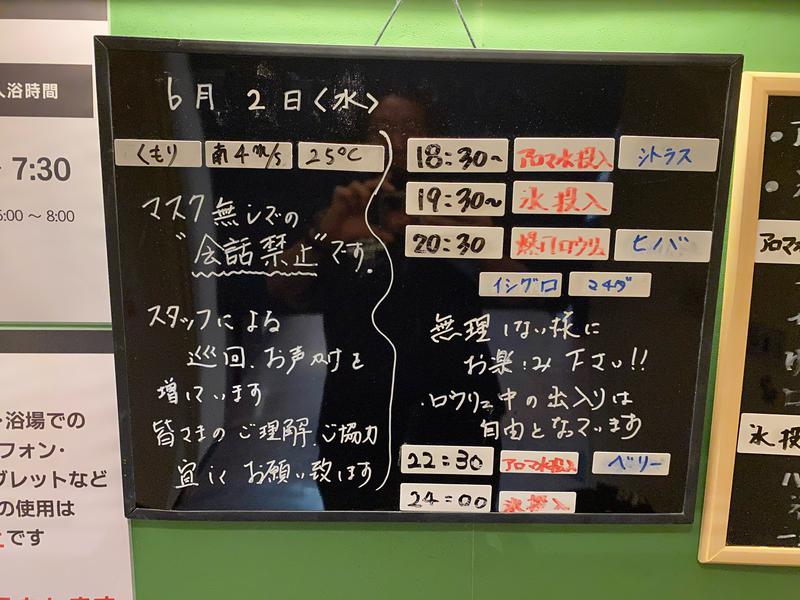 入浴時間
7:30
5:00 ～ 8:00
浴場での
フォン・
ブレットなど
の使用は
です
6月 2日〈水〉
くもり 南4m/s 25℃
マスク無しでの
"会話禁止"です.
スタッフによる
巡回、お声かけを
増しています
皆さまのご理解、ご協力
宜しくお願い致します
18:30~ アロマ水投入 シトラス
19:30~ 氷投入
20:30 爆門ロウリュ ヒノバ
イシグロ マキダ
無理しない様に
お楽しみ下さい!!
・ロウリュ中の出入りは
自由となっています
22:30 アロマ水投入 ベリー
24:00 氷投入
アロマ
氷投